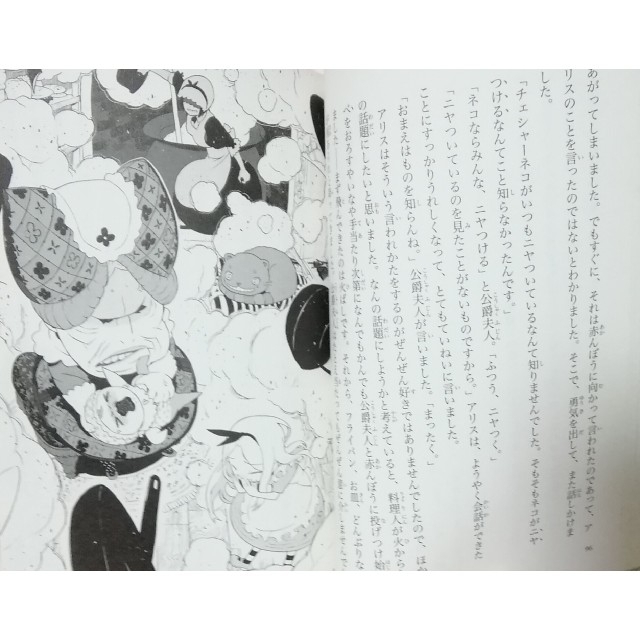 あがってしまいました。でもすぐに、それは赤んぼうに向かって言われたのであって、ア
リスのことを言ったのではないとわかりました。そこで、勇気を出して、また話しかけま
した。
「チェシャーネコがいつもニヤついているなんて知りませんでした。そもそもネコがニヤ
つけるなんてこと知らなかったんです。」
「ネコならみんな、ニヤつける」と公爵夫人、「ふつう、ニヤつく。」
「ニヤついているのを見たことがないものですから。」アリスは、ようやく会話ができた
ことにすっかりうれしくなって、とてもていねいに言いました。
「おまえはものを知らんね。」公爵夫人が言いました。「まったく。」
アリスはそういう言われかたをするのがぜんぜん好きではありませんでしたので、ほか
の話題にしたいと思いました。なんの話題にしようかと考えていると、料理人が火から
べをおろすやいなや手当たり次第になんでもかんでも公爵夫人と赤んぼうに投げつけ始
ました。まず飛んできたのは火ばしです。それから、フライパン、お皿、どんぶりな